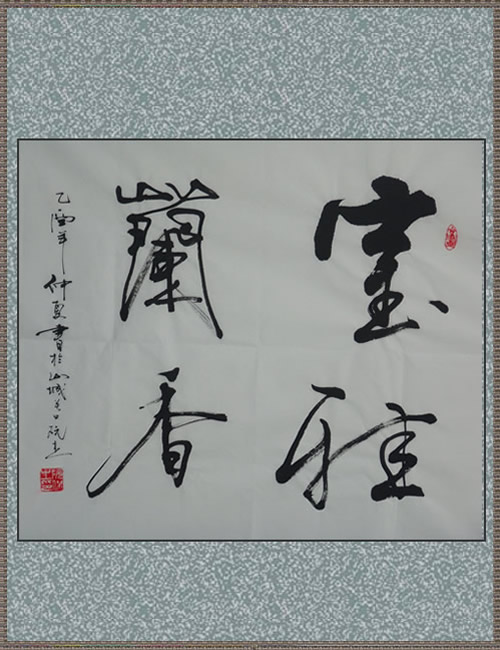 室雅
蘭香
乙酉年仲夏書於山城